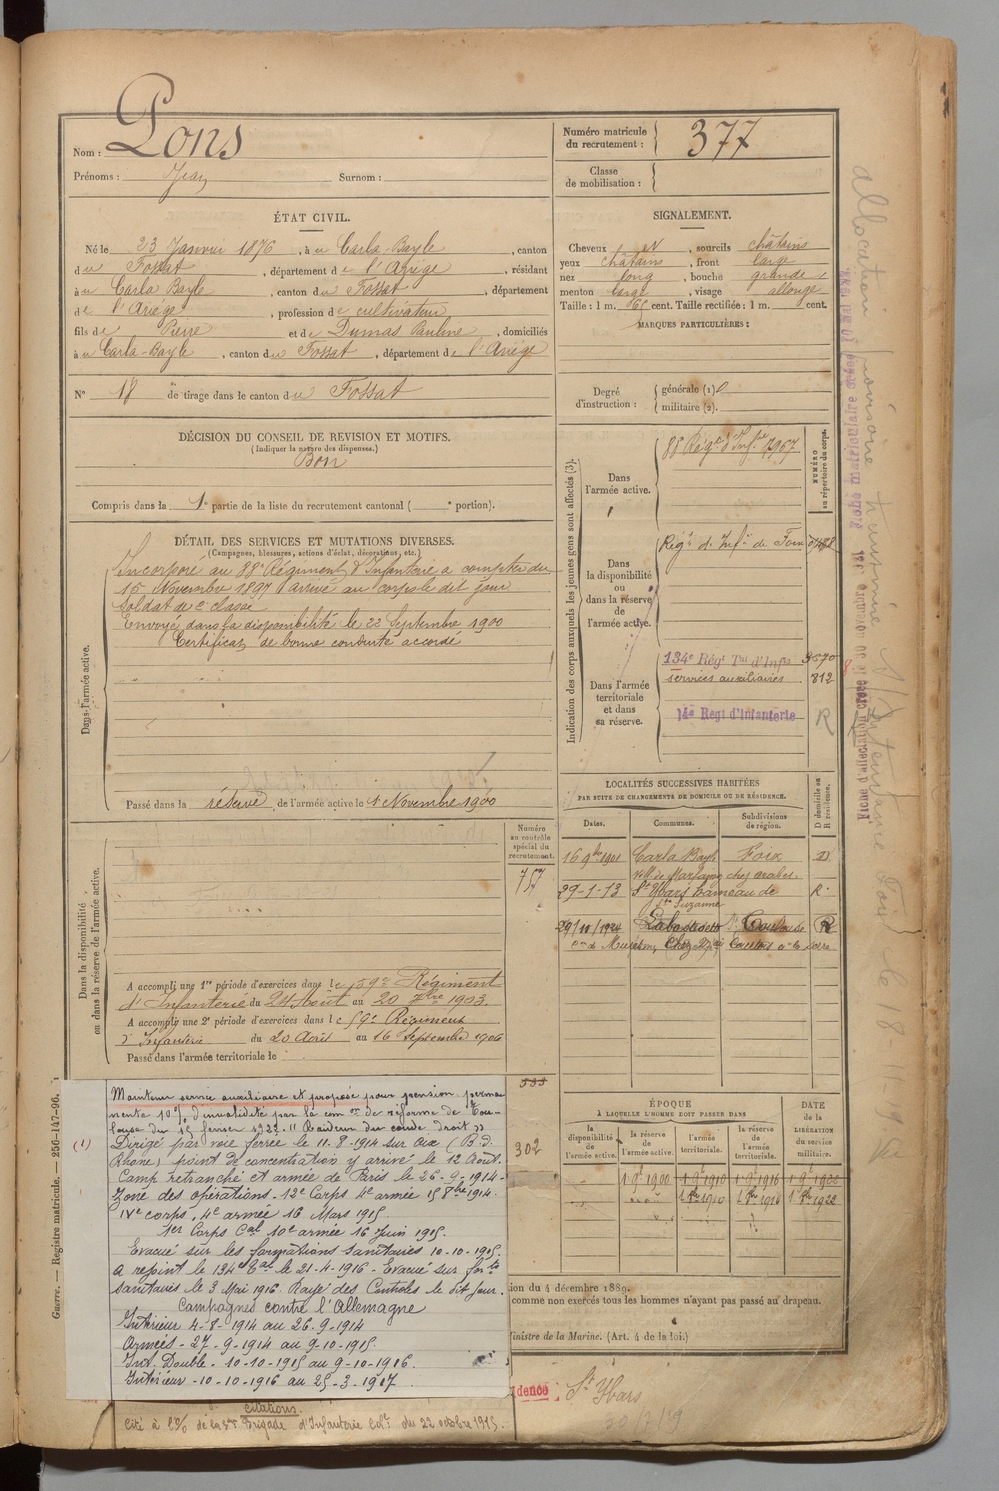 Nom : Pons
Prénoms : Jean Surnom :
Numéro matricule du recrutement : 377
Classe de mobilisation :
ÉTAT CIVIL.
Né le 23 Janvier 1876, à u Carla-Bayle, canton
du Fossat, département de l'Ariège, résidant
à u Carla Bayle, canton du Fossat, département
de l'Ariège, profession de cultivateur
fils de Pierre et de Dumas Pauline, domiciliés
à u Carla-Bayle, canton du Fossat, département de l'Ariège
N° 18 de tirage dans le canton du Fossat
SIGNALEMENT.
Cheveux N, sourcils châtains
yeux châtains, front large
nez long, bouche grande
menton large, visage allongé
Taille : 1 m. 65 cent. Taille rectifiée : 1 m. cent.
MARQUES PARTICULIÈRES :
Degré d'instruction : générale (1)
militaire (2).
DÉCISION DU CONSEIL DE REVISION ET MOTIFS.
(Indiquer la nature des dispenses.)
Bon
Compris dans la 1e partie de la liste du recrutement cantonal ( e portion).
DÉTAIL DES SERVICES ET MUTATIONS DIVERSES.
(Campagnes, blessures, actions d'éclat, décorations, etc.)
Dans l'armée active.
Incorporé au 88e Régiment d'Infanterie à compter du
15 Novembre 1897 arrivé au corps le dit jour
soldat de 2e classe
Envoyé dans la disponibilité le 22 Septembre 1900
Certificat de bonne conduite accordé
Passé dans la réserve de l'armée active le 1 Novembre 1900
Indication des corps auxquels les jeunes gens sont affectés (3).
NUMÉRO au répertoire du corps.
Dans l'armée active.
88 Régt d'Infie 7967
Dans la disponibilité ou dans la réserve de l'armée active.
Régt d'Infie de Foix
Dans l'armée territoriale et dans sa réserve.
134e Régt Tal d'Infie 3570
services auxiliaires 812
14e Regt d'Infanterie R
LOCALITÉS SUCCESSIVES HABITÉES
PAR SUITE DE CHANGEMENTS DE DOMICILE OU DE RÉSIDENCE.
Dates. Communes. Subdivisions de région. D domicile ou R résidence.
16 9bre 1901 Carla Bayle Foix D
29-1-13 St Ybars hameau de R
Ste Suzanne
29/11/1924 Toulouse R
Dans la disponibilité ou dans la réserve de l'armée active.
Numéro au contrôle spécial du recrutement.
757
A accompli une 1re période d'exercices dans le 59e Régiment
d'Infanterie du 24 Août au 20 7bre 1903
A accompli une 2e période d'exercices dans le 59e Régiment
d'Infanterie du 20 Août au 16 Septembre 1906
Passé dans l'armée territoriale le
333
302
(1)
Maintenu service auxiliaire et proposé pour pension perma
nente 10% d'invalidité par la com on de réforme de Tou-
louse du 15 février 1922 "Raideur du coude droit"
Dirigé par voie ferrée le 11-8-1914 sur Aix (B-d-
Rhône) point de concentration y arrivé le 12 Août.
Camp retranché et armée de Paris le 26-9-1914-
Zone des opérations - 12e Corps 4e armée 15 8bre 1914.
IVe corps, 4e armée 16 Mars 1915
1er Corps Cal 10e armée 16 Juin 1915.
Evacué sur les formations sanitaires 10-10-1915.
A rejoint le 134e Tal le 21-4-1916 - Evacué sur forts
sanitaires le 3 Mai 1916. Rayé des Contrôles le dit jour.
Campagnes contre l'Allemagne
Intérieur 4-8-1914 au 26-9-1914
Armées - 27-9-1914 au 9-10-1915
Int. Double - 10-10-1915 au 9-10-1916.
Intérieur - 10-10-1916 au 25-3-1917.
Citations.
Cité à l'O/ de la Brigade d'Infanterie Colle du 22 octobre 1915.
ÉPOQUE
À LAQUELLE L'HOMME DOIT PASSER DANS
la disponibilité de l'armée active. la réserve de l'armée active. l'armée territoriale. la réserve de l'armée territoriale. DATE de la LIBÉRATION du service militaire.
1 9e 1900 1 9e 1910 1 9e 1916 1 9e 1922
1 1910 1 1916 1 1922
sion du 4 décembre 1889.
comme non exercés tous les hommes n'ayant pas passé au drapeau.
Ministre de la Marine. (Art. 4 de la loi.)
dence St Ybars
30/7/19
Guerre. — Registre matricule. — 256-147-96.